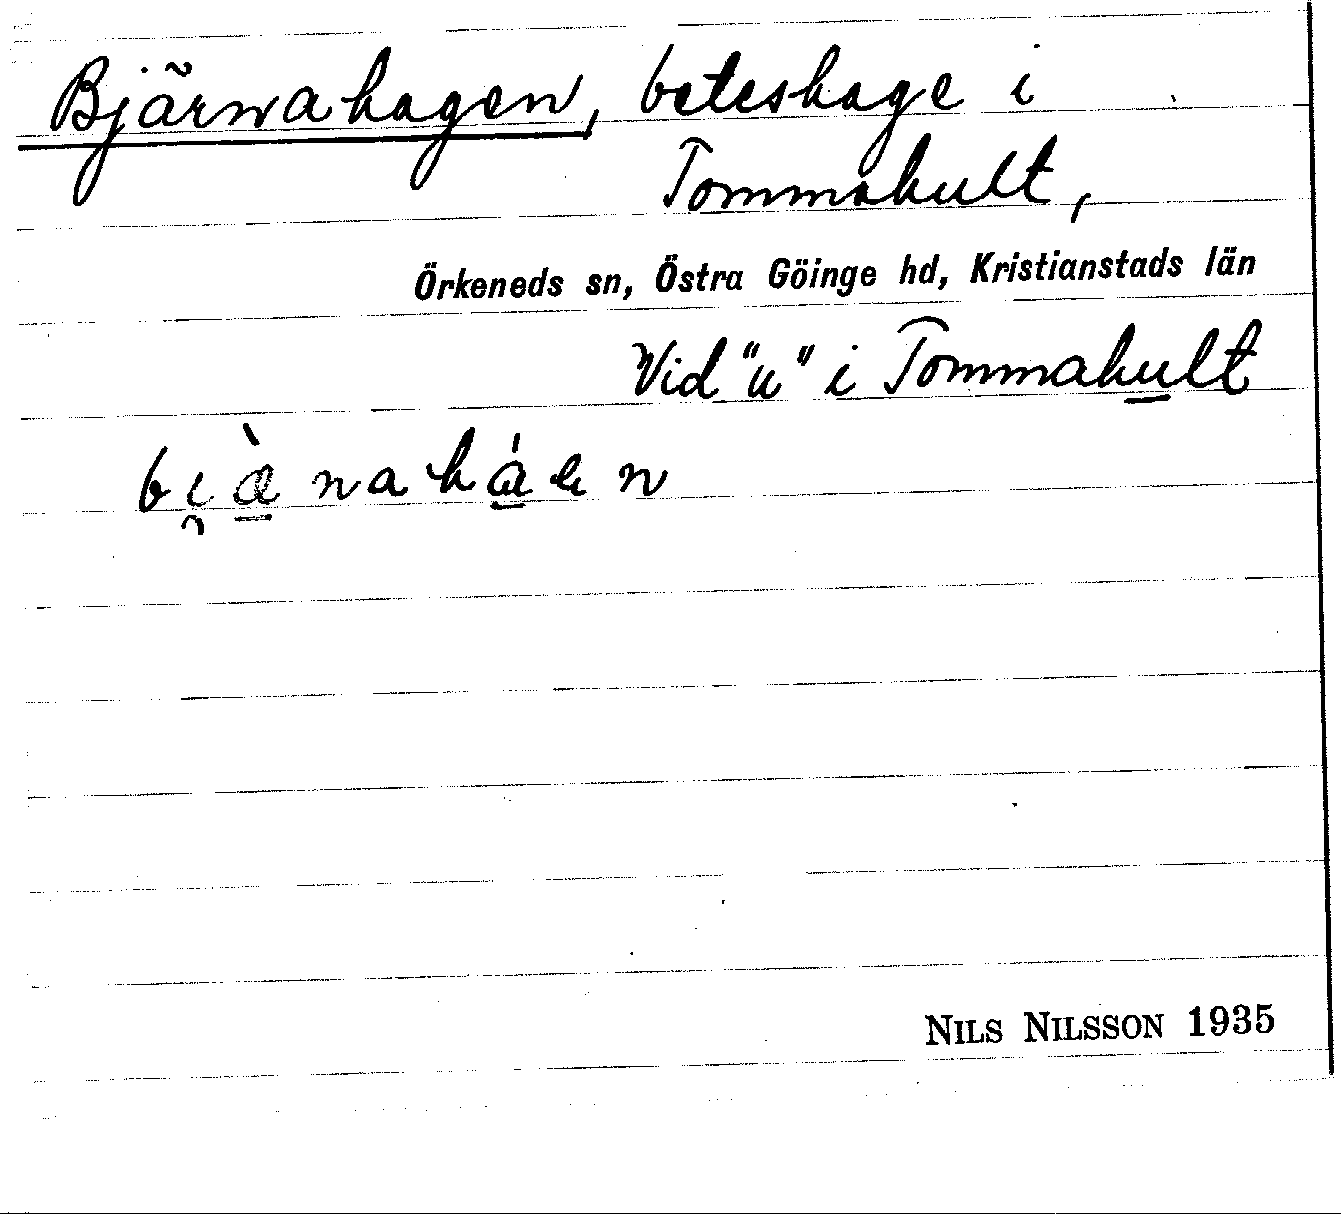 Bjärnahagen, beteshage i
Tommahult,
Örkeneds sn, Östra Göinge hd, Kristianstads län
Vid "u" i Tommahult
NILS NILSSON 1935